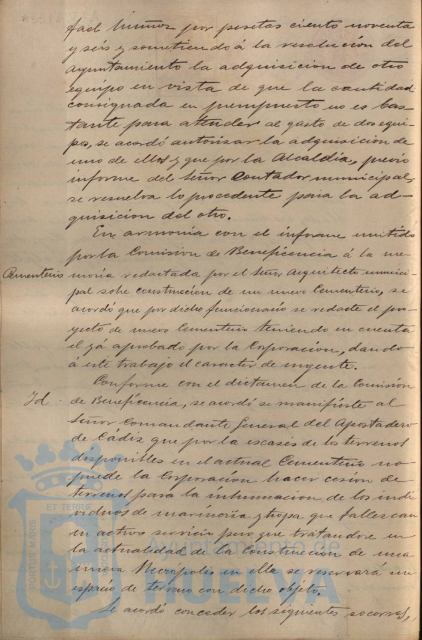 fael Muñoz por pesetas ciento noventa
y seis y sometiendo á la resolución del
ayuntamiento la adquisicion de otro
equipo en vista de que la cantidad
consignada en presupuesto no es bas-
tante para atender al gasto de dos equi-
pos, se acordó autorizar la adquisicion de
uno de ellos y que por la Alcaldía, previo
informe del Señor Contador municipal,
se resuelva lo procedente para la ad-
quisicion del otro.
En armonia con el informe emitido
por la Comision de Beneficencia á la me-
Cementerio moria redactada por el Señor Arquitecto munici-
pal sobre construccion de un nuevo Cementerio, se
acordó que por dicho funcionario se redacte el pro-
yecto de nuevo Cementerio teniendo en cuenta
el ya aprobado por la Corporacion, dando
á este trabajo el caracter de urgente.
Conforme con el dictamen de la Comisión
Id. de Beneficencia, se acordó se manifieste al
Señor Comandante General del Apostadero
de Cádiz que por la escasés de los terrenos
disponibles en el actual Cementerio no
puede la Corporacion hacer cesion de
terrenos para la inhumacion de los indi-
viduos de marineria y tropa que fallezcan
en activo servicio pero que tratandose en
la actualidad de la construccion de una
nueva Necrópolis en ella se reservará un
espacio de terreno con dicho objeto.
Se acordó conceder los siguientes socorros,
PORTUS MARIS
ET TERRE
Ayuntamiento de
HUELVA